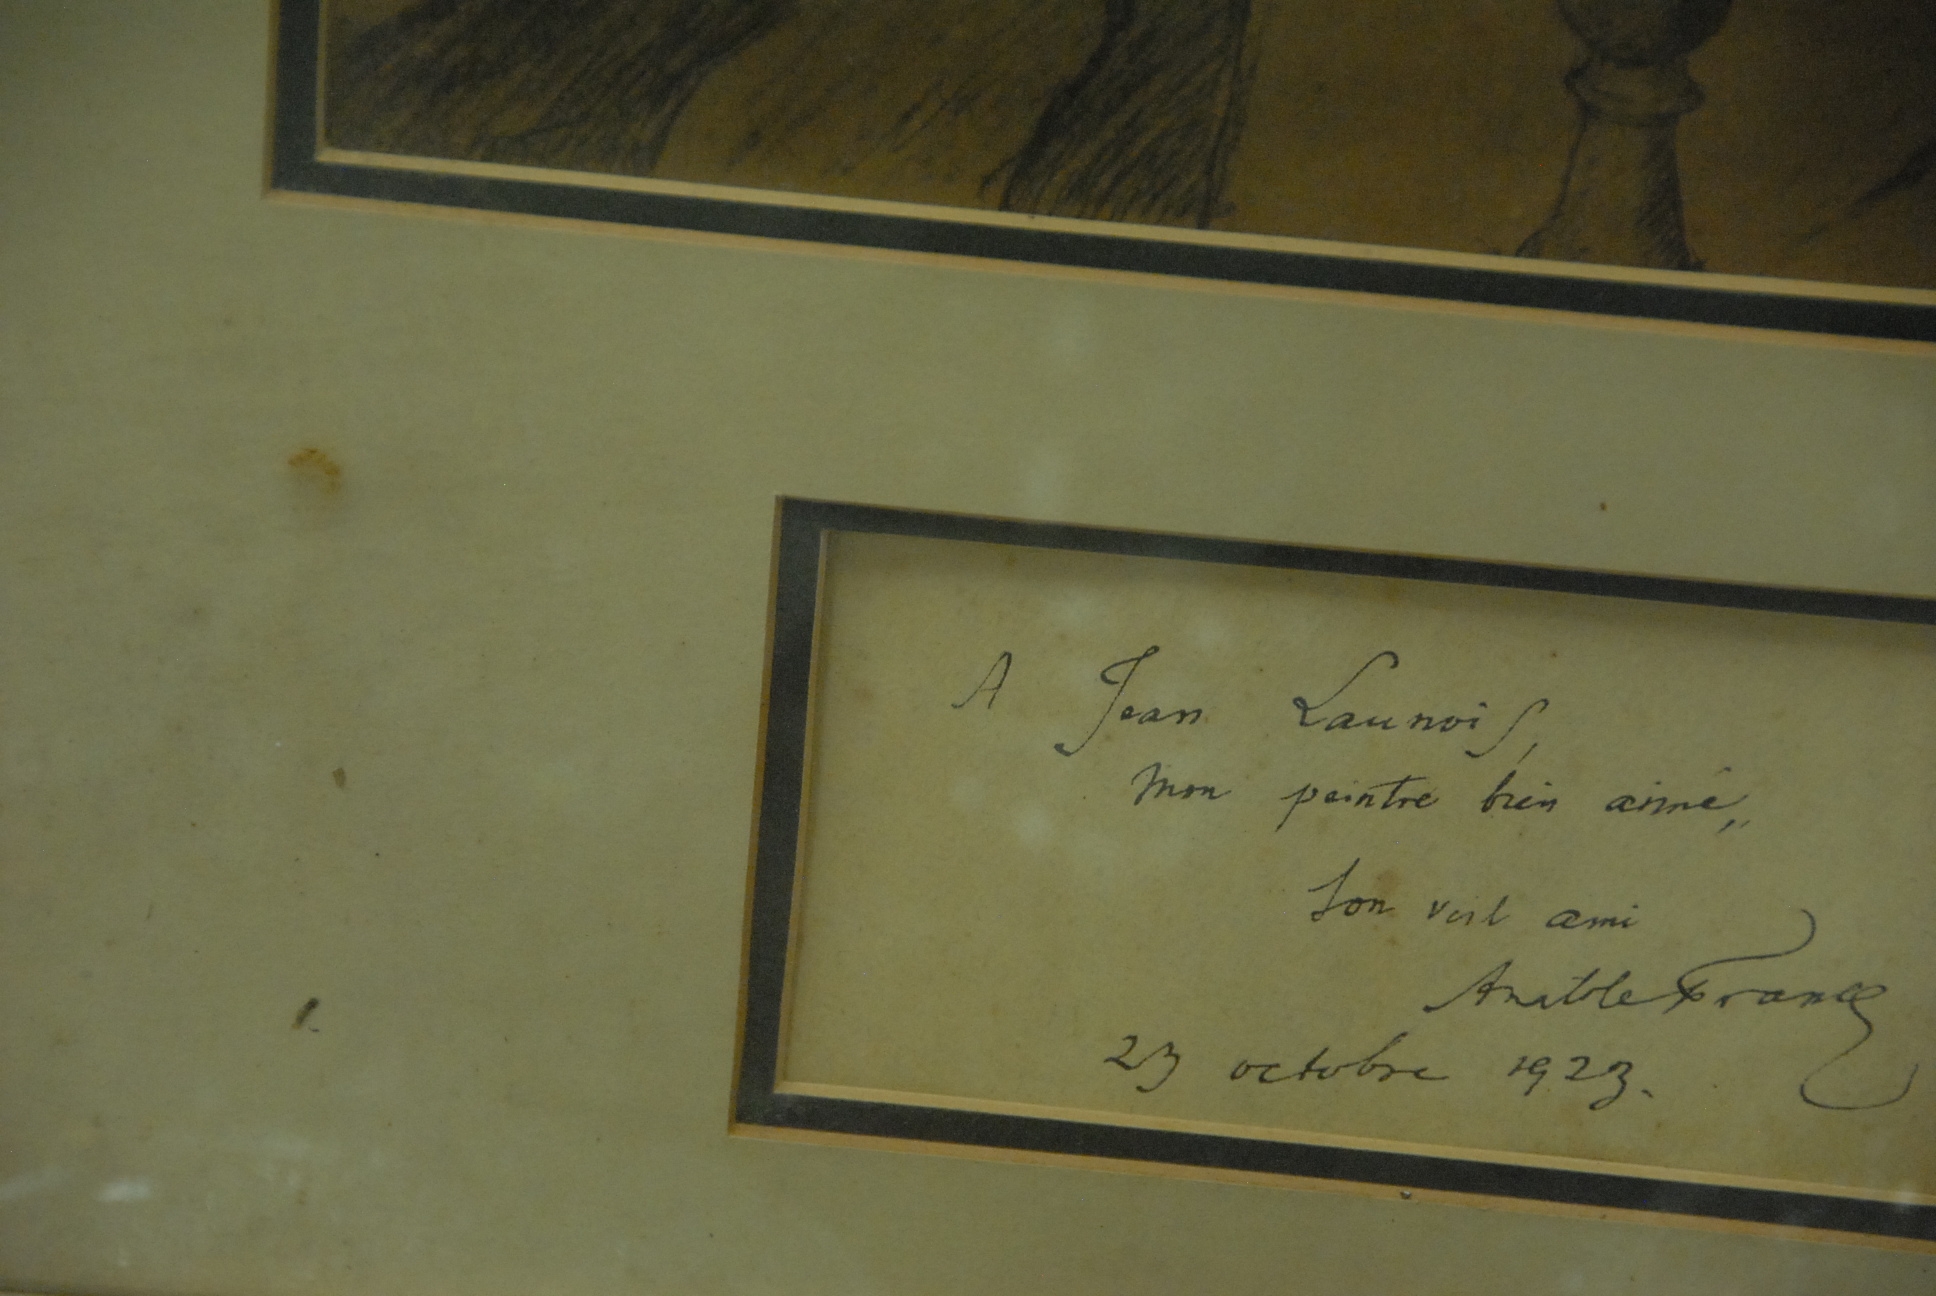 A Jean Launois,
mon peintre bien aimé,
Son veil ami
Anatole France
23 octobre 1923.